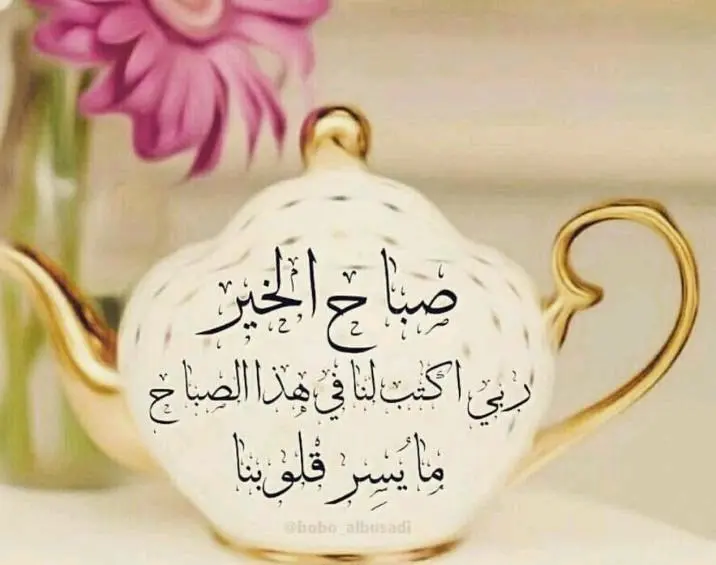 صباح الخير
ربي اكتب لنا في هذا الصباح
ما يُسِر قلوبنا
@bobo_albusadi